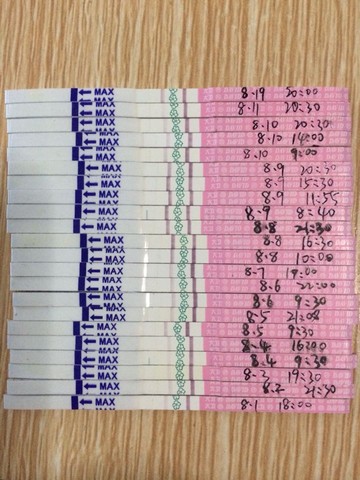 MAX 8.19 20:00
MAX 8.11 20:30
MAX 8.10 20:30
MAX 8.10 14:00
MAX 8.10 9:00
MAX 8.9 20:30
MAX 8.9 15:30
MAX 8.9 11:55
MAX 8.9 8:40
MAX 8.8 21:30
MAX 8.8 16:30
MAX 8.8 10:00
MAX 8.7
MAX 8.6 22:00
MAX 8.6 9:30
MAX 8.5 21:08
MAX 8.5 9:30
MAX 8.4 16:00
MAX 8.4 9:30
MAX 8.2 19:30
MAX 8.2 21:30
MAX 8.1 18:00